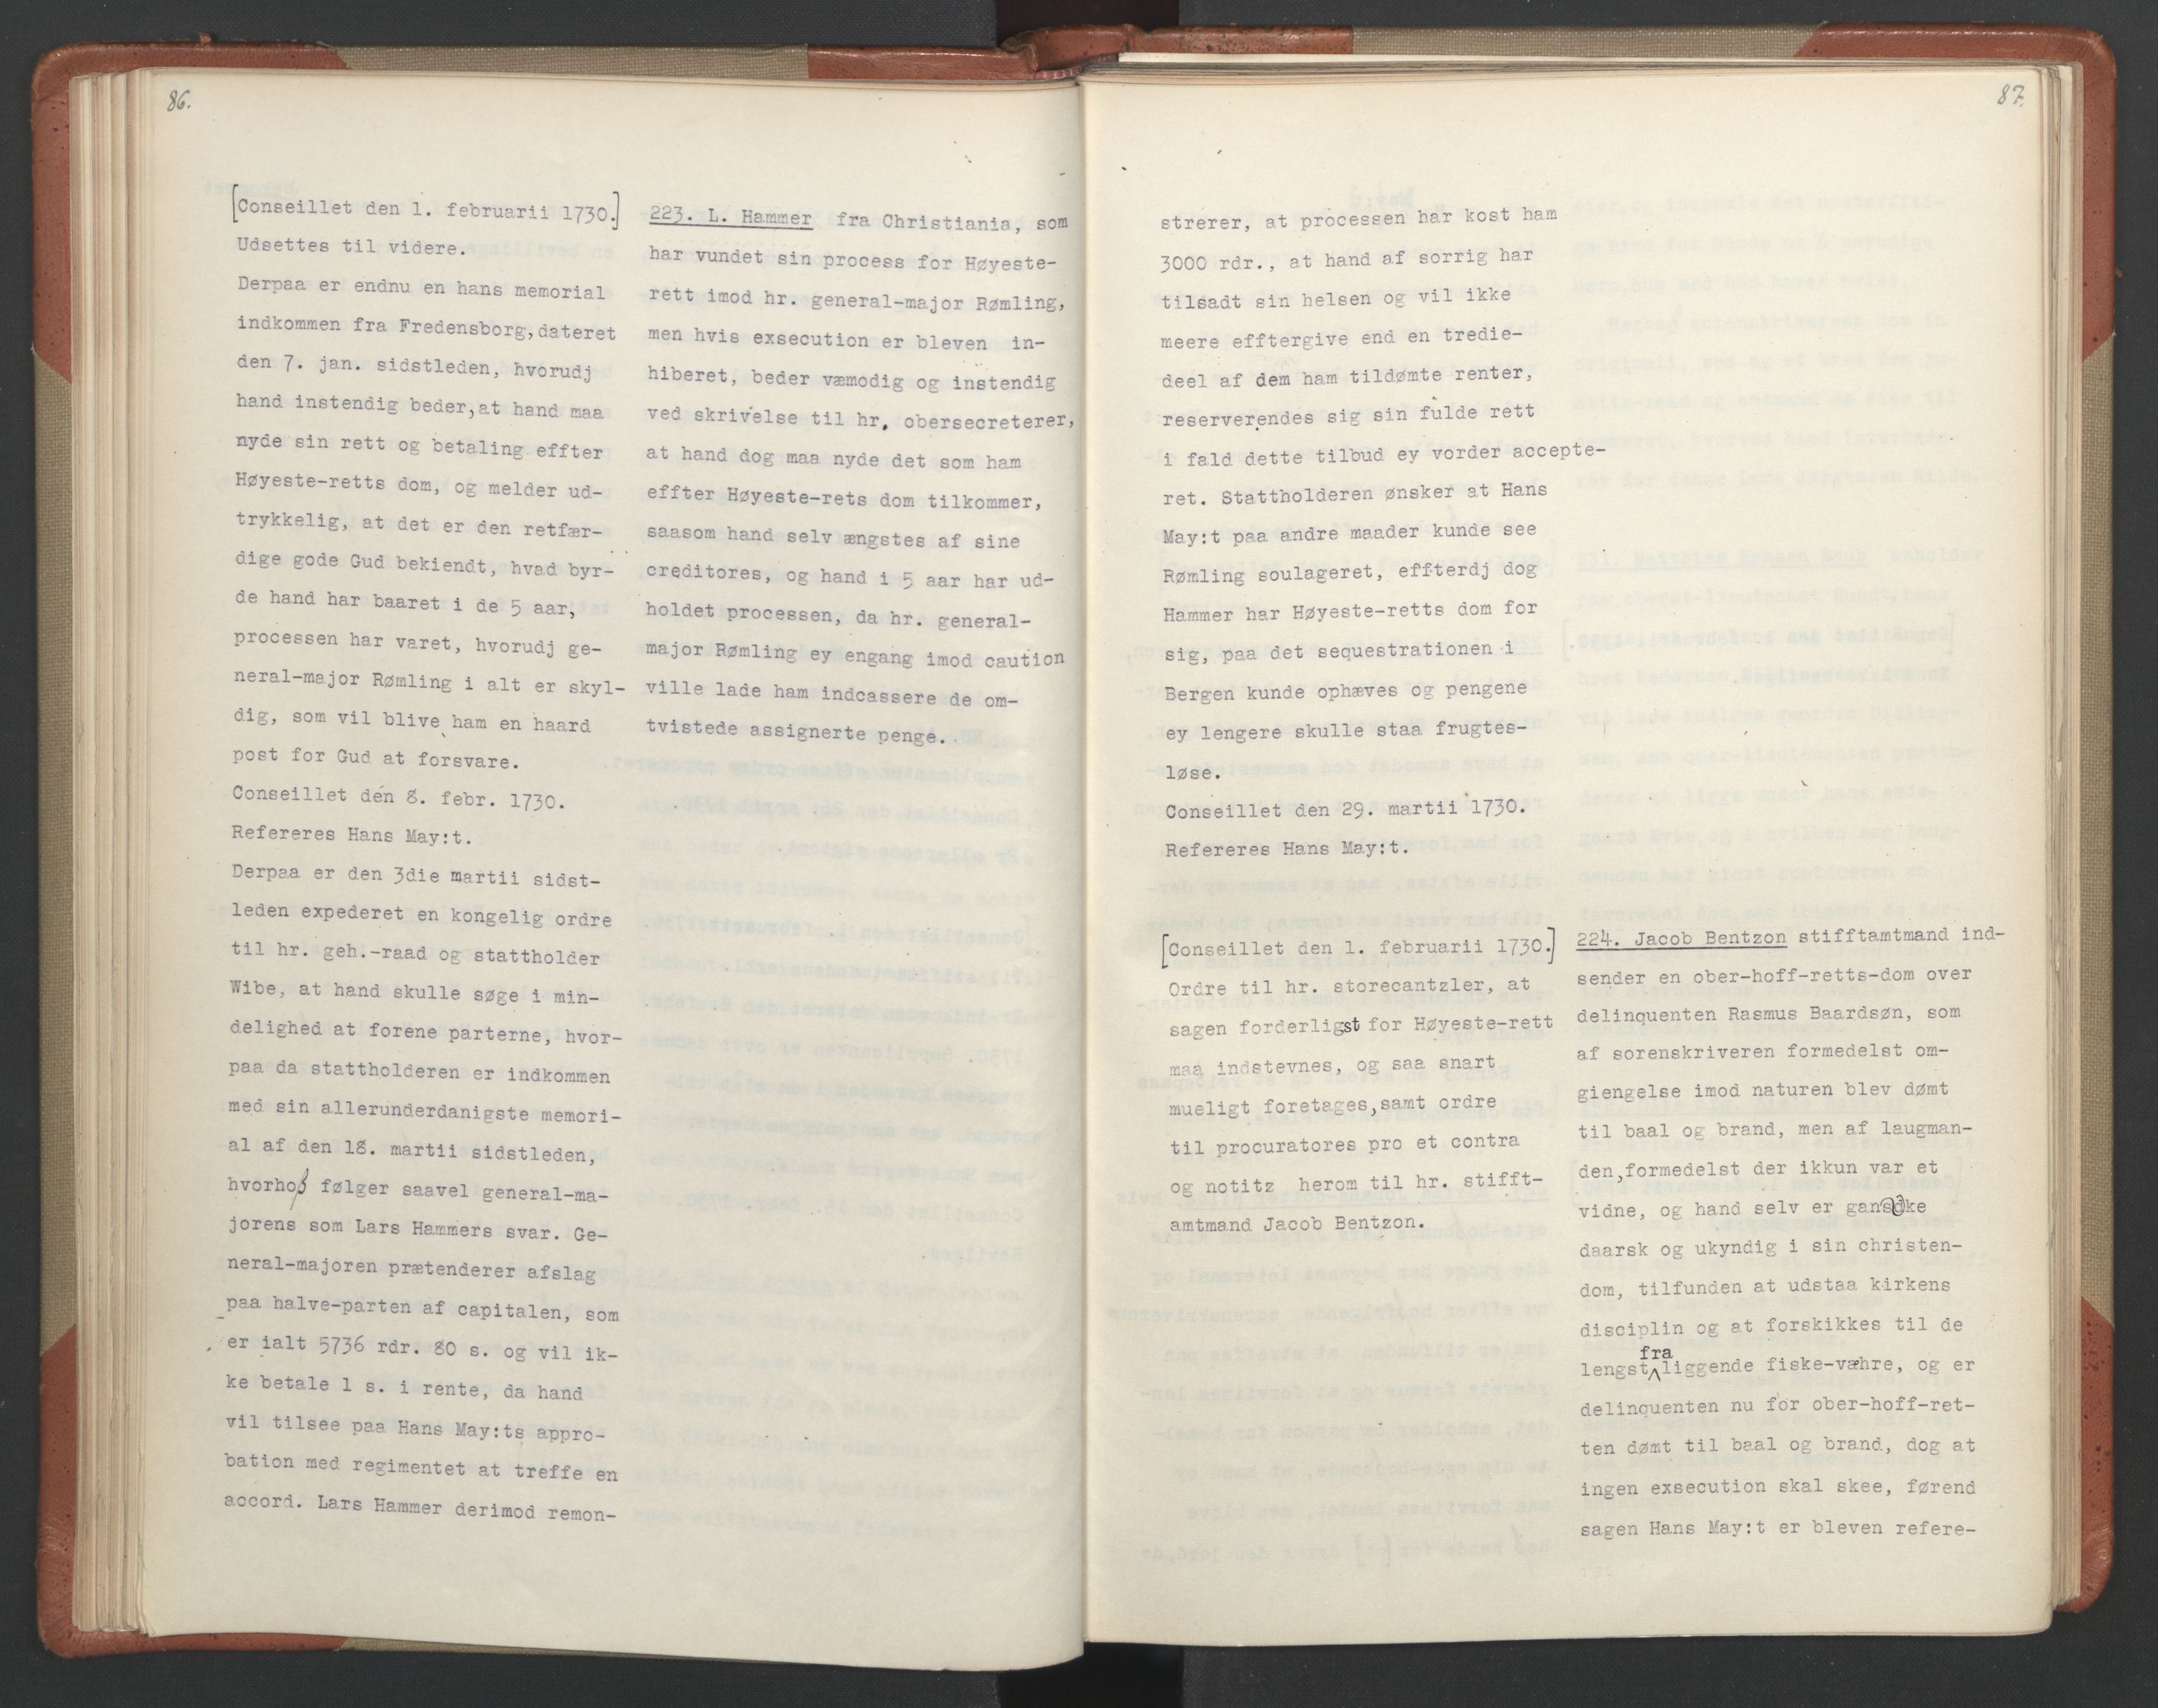 86.
[Conseillet den 1. februarii 1730.]
Udsettes til videre.
Derpaa er endnu en hans memorial
indkommen fra Fredensborg,dateret
den 7. jan. sidstleden, hvorudj
hand instendig beder,at hand maa
nyde sin rett og betaling effter
Høyeste-retts dom, og melder ud-
trykkelig, at det er den retfær-
dige gode Gud bekiendt, hvad byr-
de hand har baaret i de 5 aar,
processen har varet, hvorudj ge-
neral-major Rømling i alt er skyl-
dig, som vil blive ham en haard
post for Gud at forsvare.
Conseillet den 8. febr. 1730.
Refereres Hans May:t.
Derpaa er den 3die martii sidst-
leden expederet en kongelig ordre
til hr. geh.-raad og stattholder
Wibe, at hand skulle søge i min-
delighed at forene parterne, hvor-
paa da stattholderen er indkommen
med sin allerunderdanigste memori-
al af den 18. martii sidstleden,
hvorhoß følger saavel general-ma-
jorens som Lars Hammers svar. Ge-
neral-majoren prætenderer afslag
paa halve-parten af capitalen, som
er ialt 5736 rdr. 80 s. og vil ik-
ke betale 1 s. i rente, da hand
vil tilsee paa Hans May:ts appro-
bation med regimentet at treffe en
accord. Lars Hammer derimod remon-
223. L. Hammer fra Christiania, som
har vundet sin process for Høyeste-
rett imod hr. general-major Rømling,
men hvis exsecution er bleven in-
hiberet, beder væmodig og instendig
ved skrivelse til hr. obersecreterer,
at hand dog maa nyde det som ham
effter Høyeste-rets dom tilkommer,
saasom hand selv ængstes af sine
creditores, og hand i 5 aar har ud-
holdet processen, da hr. general-
major Rømling ey engang imod caution
ville lade ham indcassere de om-
tvistede assignerte penge.
87.
strerer, at processen har kost ham
3000 rdr., at hand af sorrig har
tilsadt sin helsen og vil ikke
meere efftergive end en tredie-
deel af dem ham tildømte renter,
reserverendes sig sin fulde rett
i fald dette tilbud ey vorder accepte-
ret. Stattholderen ønsker at Hans
May:t paa andre maader kunde see
Rømling soulageret, effterdj dog
Hammer har Høyeste-retts dom for
sig, paa det sequestrationen i
Bergen kunde ophæves og pengene
ey lengere skulle staa frugtes-
løse.
Conseillet den 29. martii 1730.
Refereres Hans May:t.
[Conseillet den 1. februarii 1730.]
Ordre til hr. storecantzler, at
sagen forderligst for Høyeste-rett
maa indstevnes, og saa snart
mueligt foretages,samt ordre
til procuratores pro et contra
og notitz herom til hr. stifft-
amtmand Jacob Bentzon.
224. Jacob Bentzon stifftamtmand ind-
sender en ober-hoff-retts-dom over
delinquenten Rasmus Baardsøn, som
af sorenskriveren formedelst om-
giengelse imod naturen blev dømt
til baal og brand, men af laugman-
den,formedelst der ikkun var et
vidne, og hand selv er gandske
daarsk og ukyndig i sin christen-
dom, tilfunden at udstaa kirkens
disciplin og at forskikkes til de
fra
lengst^liggende fiske-væhre, og er
delinquenten nu for ober-hoff-ret-
ten dømt til baal og brand, dog at
ingen exsecution skal skee, førend
sagen Hans May:t er bleven refere-